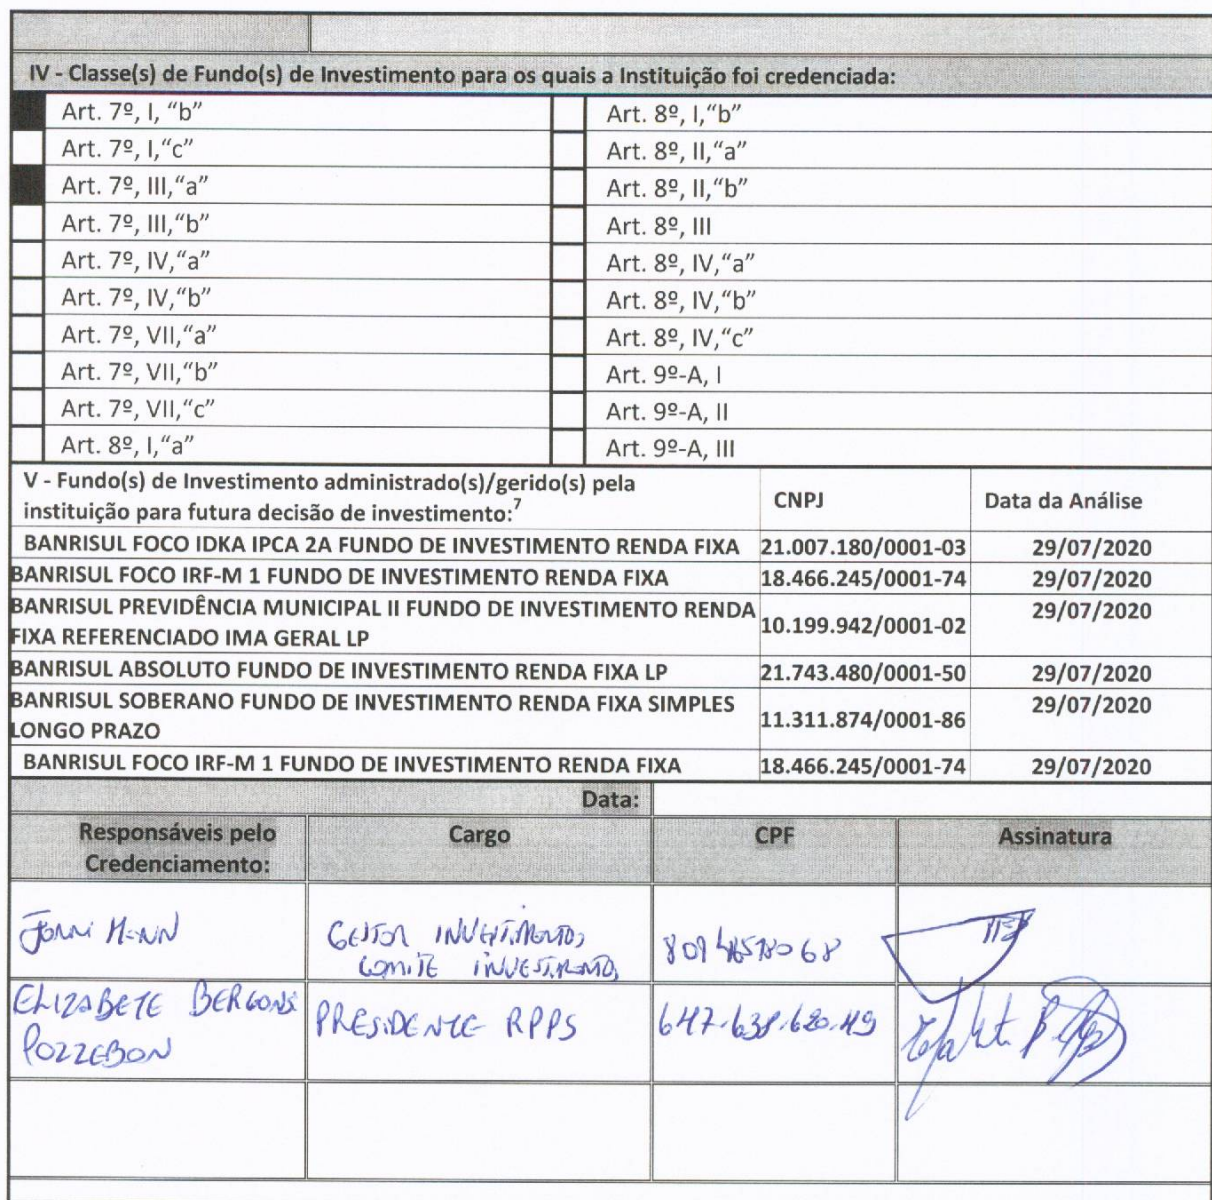 IV - Classe(s) de Fundo(s) de Investimento para os quais a Instituição foi credenciada:
Art. 7º, I, “b” Art. 8º, I,“b”
Art. 7º, I,“c” Art. 8º, II,“a”
Art. 7º, III,“a” Art. 8º, II,“b”
Art. 7º, III,“b” Art. 8º, III
Art. 7º, IV,“a” Art. 8º, IV,“a”
Art. 7º, IV,“b” Art. 8º, IV,“b”
Art. 7º, VII,“a” Art. 8º, IV,“c”
Art. 7º, VII,“b” Art. 9º-A, I
Art. 7º, VII,“c” Art. 9º-A, II
Art. 8º, I,“a” Art. 9º-A, III
V - Fundo(s) de Investimento administrado(s)/gerido(s) pela
instituição para futura decisão de investimento:7 CNPJ Data da Análise
BANRISUL FOCO IDKA IPCA 2A FUNDO DE INVESTIMENTO RENDA FIXA 21.007.180/0001-03 29/07/2020
BANRISUL FOCO IRF-M 1 FUNDO DE INVESTIMENTO RENDA FIXA 18.466.245/0001-74 29/07/2020
BANRISUL PREVIDÊNCIA MUNICIPAL II FUNDO DE INVESTIMENTO RENDA
FIXA REFERENCIADO IMA GERAL LP 10.199.942/0001-02 29/07/2020
BANRISUL ABSOLUTO FUNDO DE INVESTIMENTO RENDA FIXA LP 21.743.480/0001-50 29/07/2020
BANRISUL SOBERANO FUNDO DE INVESTIMENTO RENDA FIXA SIMPLES
LONGO PRAZO 11.311.874/0001-86 29/07/2020
BANRISUL FOCO IRF-M 1 FUNDO DE INVESTIMENTO RENDA FIXA 18.466.245/0001-74 29/07/2020
Data:
Responsáveis pelo
Credenciamento: Cargo CPF Assinatura
GESTOR INVESTIMENTOS
COMITE INVESTIMENTOS
ELIZABETE
POZZEBON PRESIDENTE RPPS 647.638.620.49